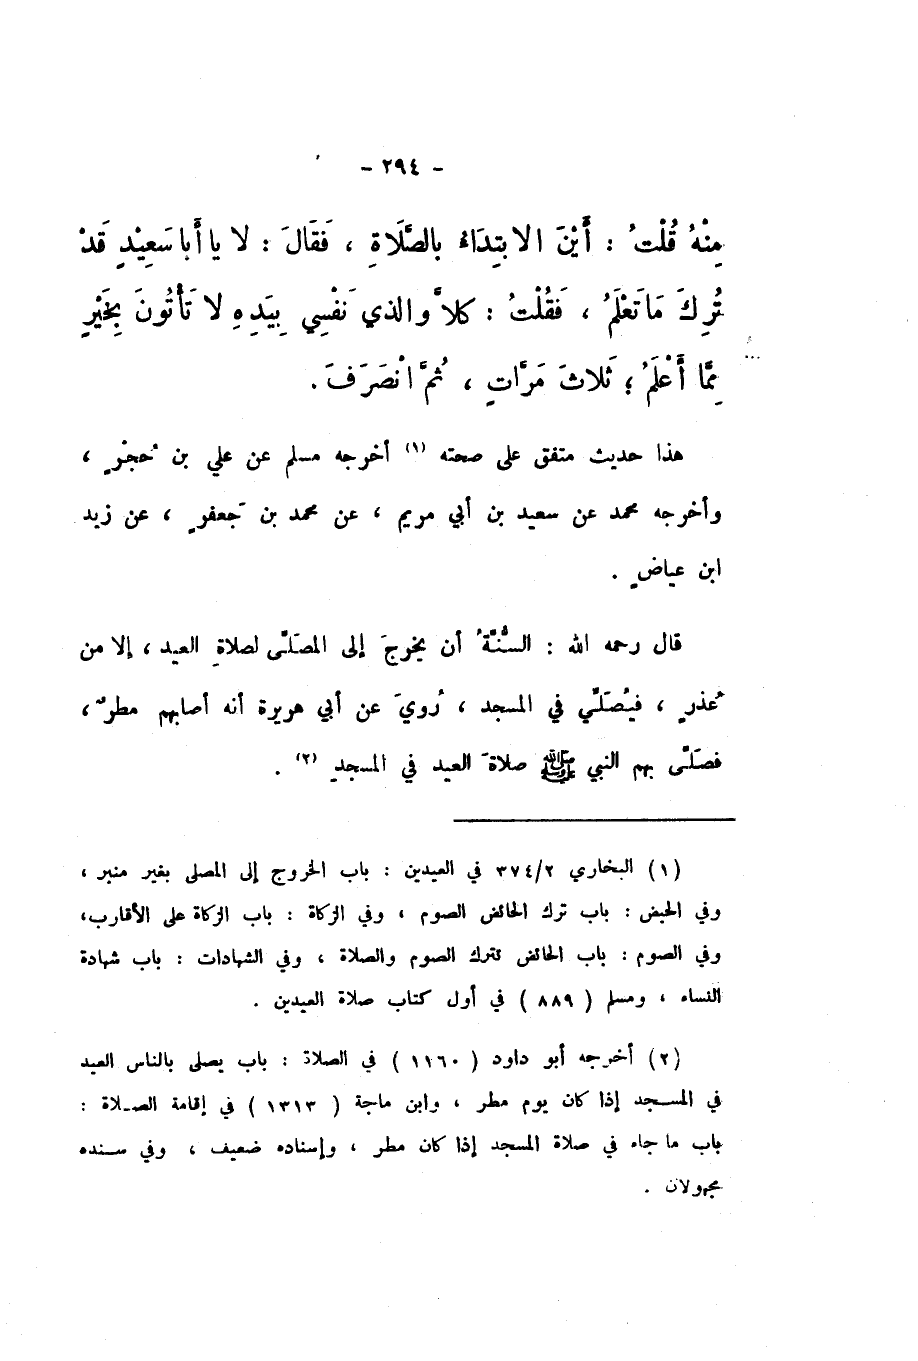 - ٢٩٤ -
مِنْهُ قُلْتُ : أَيْنَ الابتِدَاءُ بالصَّلَاةِ ، فَقَالَ : لا يا أَبا سَعِيْدٍ قَدْ
تُرِكَ مَا تَعْلَمُ ، فَقُلْتُ : كلاَّ والذي نَفْسِي بِيَدِهِ لا تَأْتُونَ بِخَيْرٍ
مِمَّا أَعْلَمُ ؛ ثَلاثَ مَرَّاتٍ ، ثُمَّ انْصَرَفَ .
هذا حديث متفق على صحته (١) أخرجه مسلم عن علي بن حُجْرٍ ،
وأخرجه محمد عن سعيد بن أبي مريم ، عن محمد بن جَعفرٍ ، عن زيد
ابن عياضٍ .
قال رحمه الله : السُّنَّةُ أن يخرجَ إلى المصَلّى لصلاةِ العيد ، إلا من
عُذرٍ ، فيُصَلّي في المسجد ، رُويَ عن أبي هريرة أنه أصابهم مطرٌ ،
فصَلّى بهم النبي ﷺ صلاةَ العيد في المسجدِ (٢) .
(١) البخاري ٣٧٤/٢ في العيدين : باب الخروج إلى المصلى بغير منبر ،
وفي الحيض : باب ترك الحائض الصوم ، وفي الزكاة : باب الزكاة على الأقارب،
وفي الصوم : باب الحائض تترك الصوم والصلاة ، وفي الشهادات : باب شهادة
النساء ، ومسلم ( ٨٨٩ ) في أول كتاب صلاة العيدين .
(٢) أخرجه أبو داود ( ١١٦٠ ) في الصلاة : باب يصلى بالناس العيد
في المسجد إذا كان يوم مطر ، وابن ماجة ( ١٣١٣ ) في إقامة الصلاة :
باب ما جاء في صلاة المسجد إذا كان مطر ، وإسناده ضعيف ، وفي سنده
مجهولان .